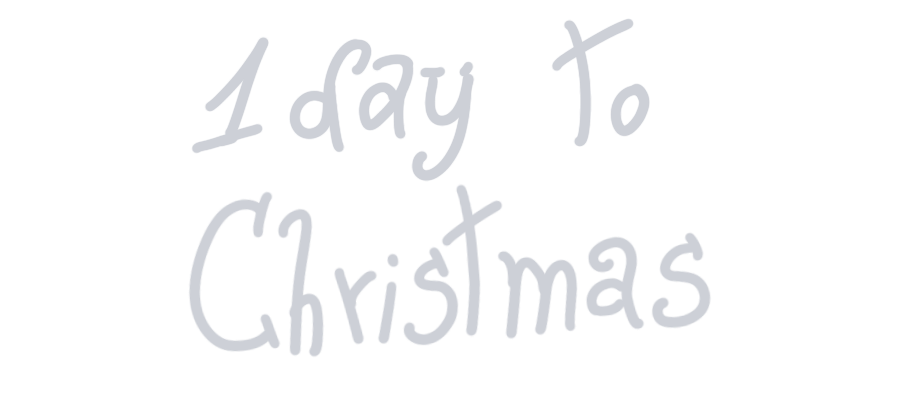 1 day to
Christmas